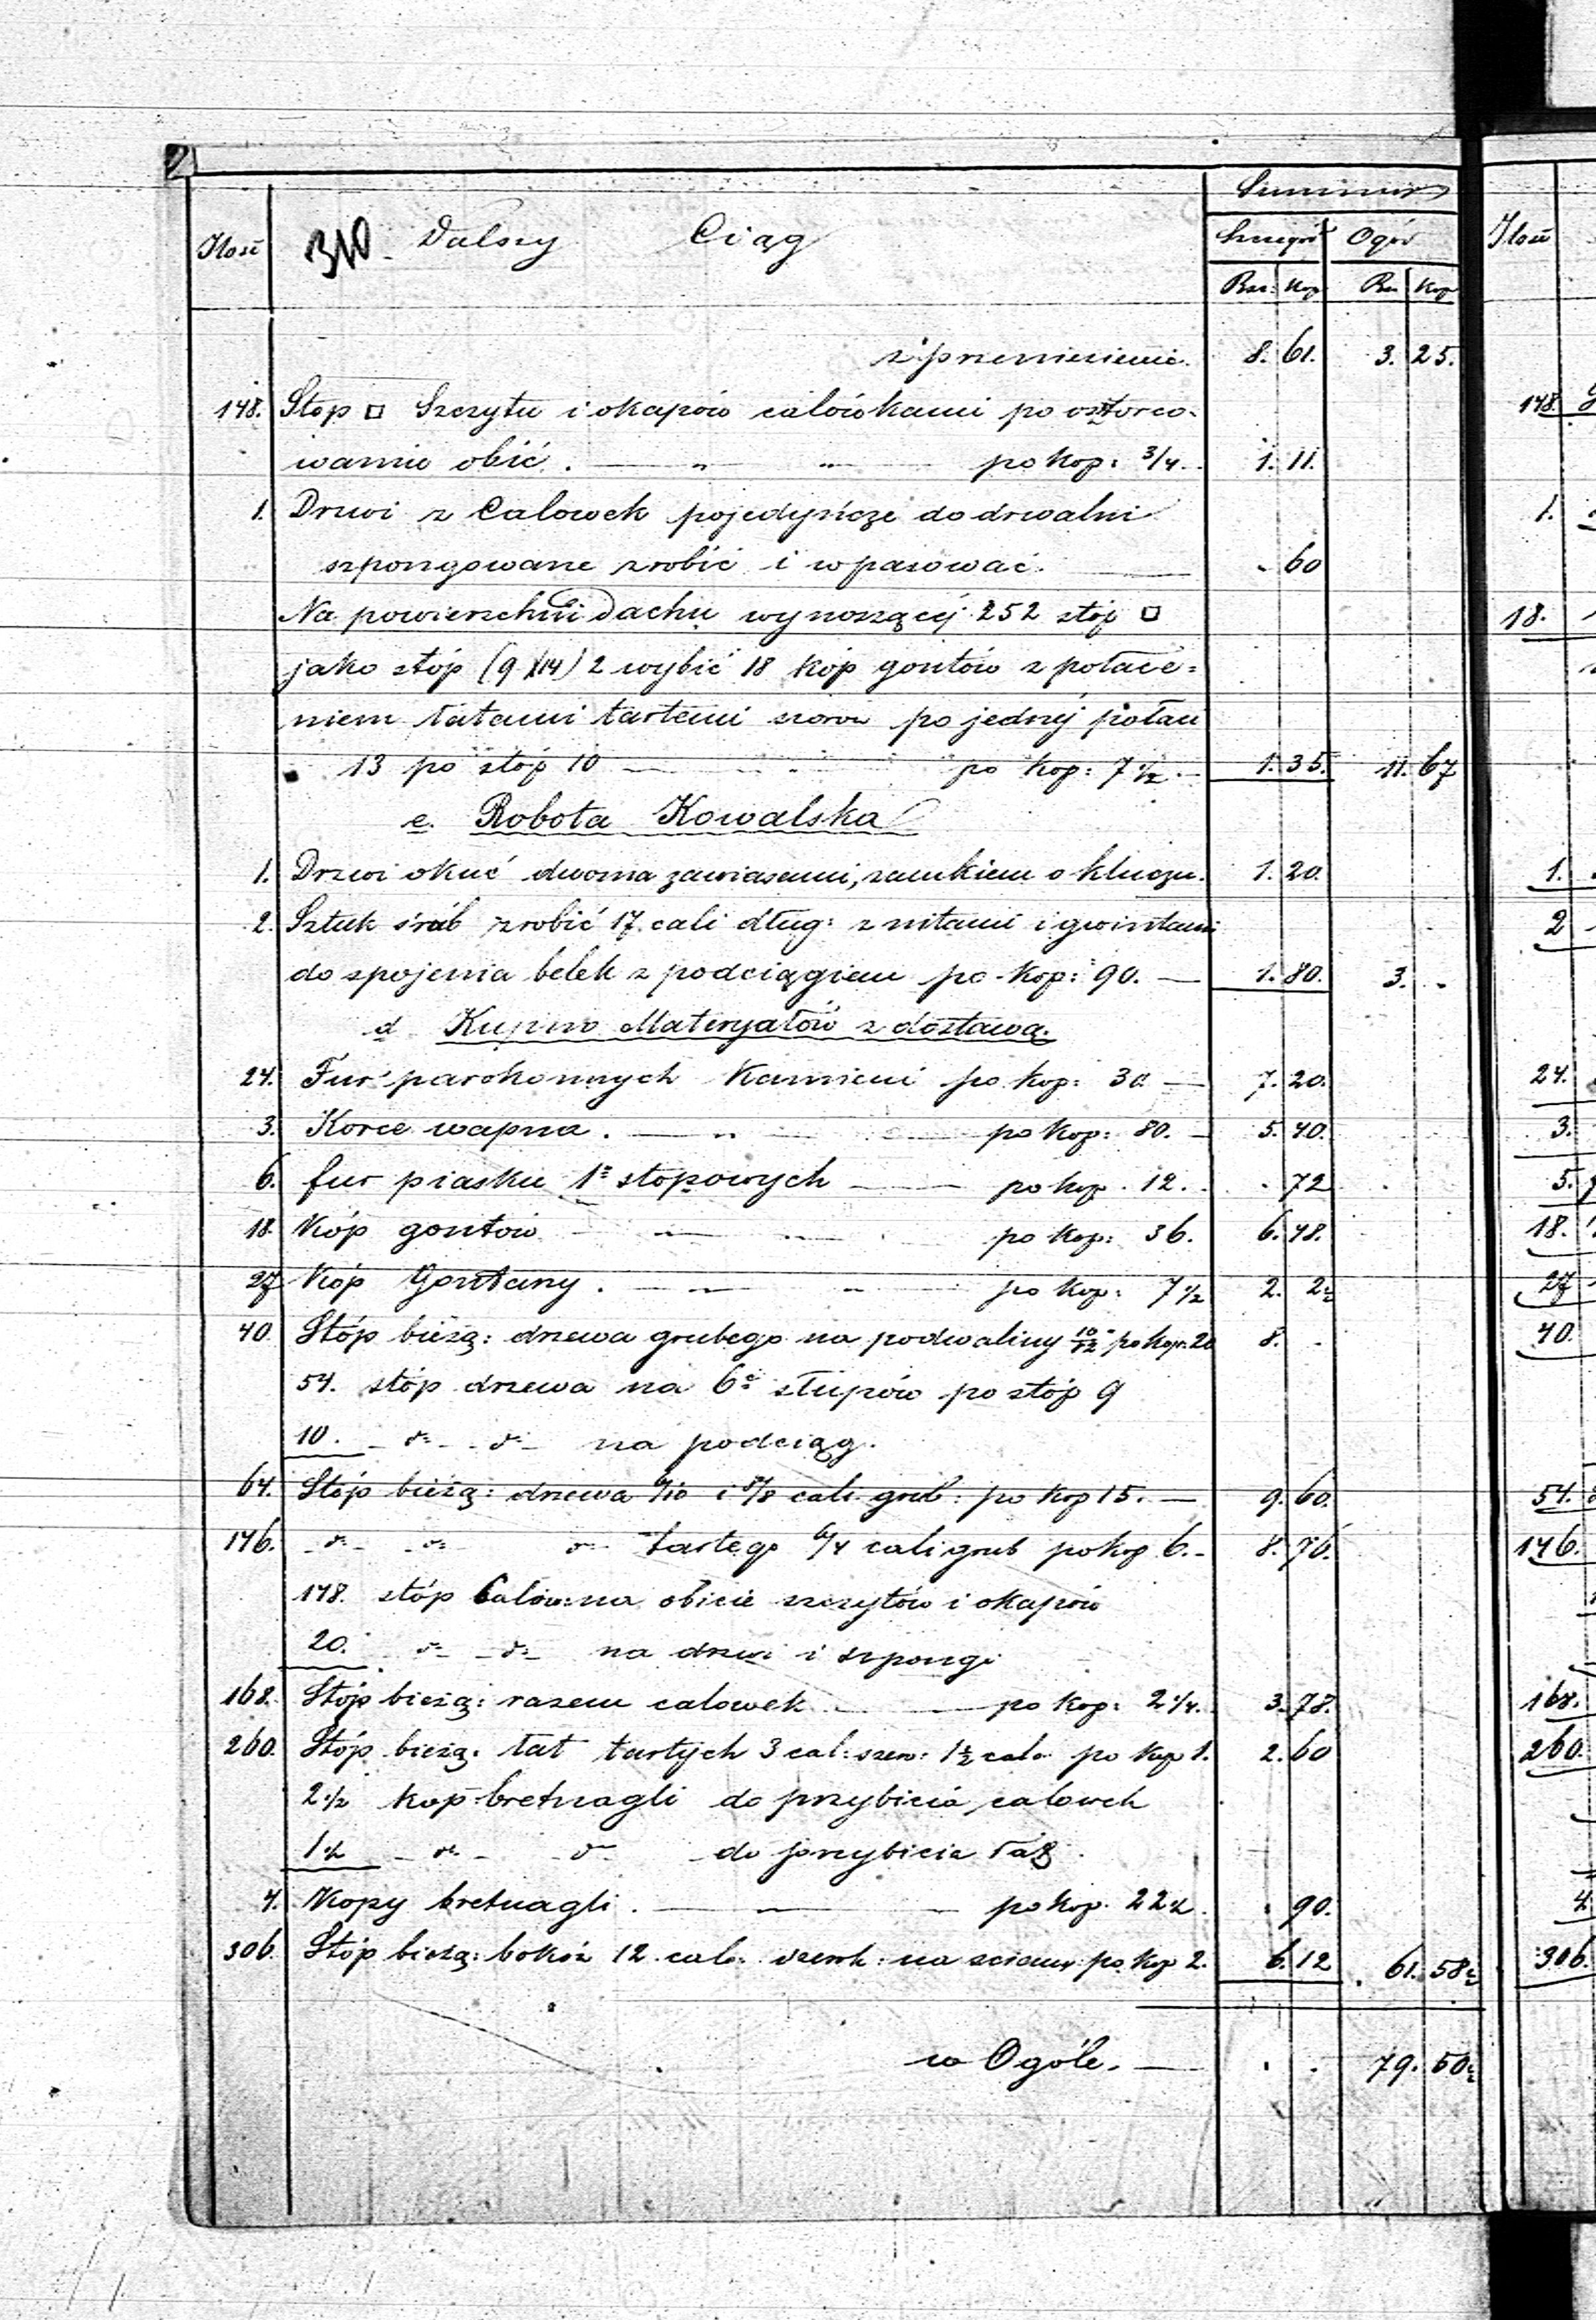 2
Summa
Ilość 310 Dalszy Ciąg Szczegół Ogół Ilość
Rsr: Kop Rsr Kop
z przeniesienia. 8. 61. 3. 25.
148. Stop □ Szczytu i okapów calówkami po osztorco- 148.
waniu obić. — " — " — po kop: 3/4. 1. 11.
1. Drzwi z Calowek pojedyńcze do drwalni 1.
szpongowane zrobić i wpasować. — - 60
Na powierzchni Dachu wynoszącej 252 stóp □ 18.
jako stóp (9 X 14) 2 wybić 18 kóp gontów z połace-
niem łatami tartemi szorow po jednej połaci
13 po stóp 10 — po kop: 7 1/2. 1. 35. 11. 67
c. Robota Kowalska
1. Drzwi okuć dwoma zawiasami, zamkiem o kluczu. 1. 20. 1.
2. Sztuk śrub zrobić 17 cali dług: z nitami i gwintami 2
do spojenia belek z podciągiem po kop: 90. — 1. 80. 3. -
d Kupno Materyałów z dostawą.
24. Fur parokonnych Kamieni po kop: 30 — 7. 20. 24.
3. Korce wapna. — " — po kop: 80. — 5. 40. 3.
6. fur piasku 1o stopowych — po kop. 12. . 72 5.
18. Kóp gontów — po kop: 36. 6. 48. 18.
27 Kóp Gontany. — po kop: 7 1/2 2. 2 1/2 27
40. Stóp bieżą: drzewa grubego na podwaliny 10/12 po kop: 20 8. - 40.
54. stóp drzewa na 6c słupów po stóp 9
10. - do - do - na podciąg.
64. Stóp bieżą: drzewa 6/10 i 8/8 cali grub: po kop 15. — 9. 60. 54.
146. - do - do do tartego 6/4 cali grub po kop 6. - 8. 76. 146.
148. stóp Calów: na obicie szczytów i okapów
20. do - do na drzwi i szpongi
168. Stóp bieżą: razem calowek — po kop: 2 1/4. 3. 78. 168.
260. Stóp bieżą: łat tartych 3 cal: szer: 1 1/2 calo po kop 1. 2. 60 260.
2 1/2 kop bretnagli do przybicia calowek
1 1/2 - do - do - do przybicia łat.
4. Kopy bretnagli. — po kop. 22 1/2. . 90. 4
306. Stóp bieżą: bokóz 12 calo szerok: na scianę po kop 2. 6. 12 61. 58 1/2 306.
w Ogóle. — . . 79. 50 1/2